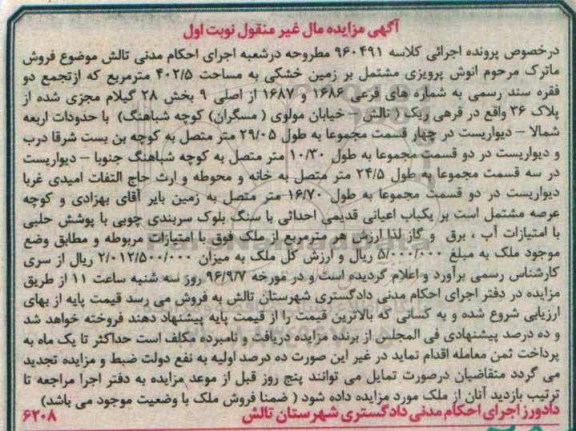 آگهی مزایده مال غیر منقول نوبت اول
درخصوص پرونده اجرائی کلاسه ۹۶۰۴۹۱ مطروحه درشعبه اجرای احکام مدنی تالش موضوع فروش
ماترک مرحوم انوش پرویزی مشتمل بر زمین خشکی به مساحت ۴۰۲/۵ مترمربع که ازتجمع دو
فقره سند رسمی به شماره های فرعی ۱۶۸۶ و ۱۶۸۷ از اصلی ۹ بخش ۲۸ گیلام مجزی شده از
پلاک ۳۶ واقع در قرهی ریک ( تالش – خیابان مولوی ( مسگران) کوچه شباهنگ) با حدودات اربعه
شمالا – دیواریست در چهار قسمت مجموعا به طول ۲۹/۰۵ متر متصل به کوچه بن بست شرقا درب
و دیواریست در دو قسمت مجموعا به طول ۱۰/۳۰ متر متصل به کوچه شباهنگ جنوبا – دیواریست
در سه قسمت مجموعا به طول ۲۴/۵ متر متصل به خانه و محوطه و ارث حاج التفات امیدی غربا
دیواریست در دو قسمت مجموعا به طول ۱۶/۷۰ متر متصل به زمین بایر آقای بهزادی و کوچه
عرصه مشتمل است بر یکباب اعیانی قدیمی احداثی با سنگ بلوک سربندی چوبی با پوشش حلبی
با امتیازات آب ، برق و گاز لذا ارزش هر مترمربع از ملک فوق با امتیازات مربوطه و مطابق وضع
موجود ملک به مبلغ ۵/۰۰۰/۰۰۰ ریال و ارزش کل ملک به میزان ۲/۰۱۲/۵۰۰/۰۰۰ ریال از سری
کارشناس رسمی برآورد و اعلام گردیده است و در مورخه ۹۶/۹/۷ روز سه شنبه ساعت ۱۱ از طریق
مزایده در دفتر اجرای احکام مدنی دادگستری شهرستان تالش به فروش می رسد قیمت پایه از بهای
ارزیابی شروع شده و به کسانی که بالاترین قیمت را از قیمت پایه پیشنهاد دهند فروخته خواهد شد
و ده درصد پیشنهادی فی المجلس از برنده مزایده دریافت و نامبرده مکلف است حداکثر تا یک ماه به
پرداخت ثمن معامله اقدام نماید در غیر این صورت ده درصد اولیه به نفع دولت ضبط و مزایده تجدید
می گردد متقاضیان درصورت تمایل می توانند پنج روز قبل از موعد مزایده به دفتر اجرا مراجعه تا
ترتیب بازدید آنان از ملک مورد مزایده داده شود ( ضمنا فروش ملک با وضعیت موجود می باشد)
دادورز اجرای احکام مدنی دادگستری شهرستان تالش
۶۲۰۸